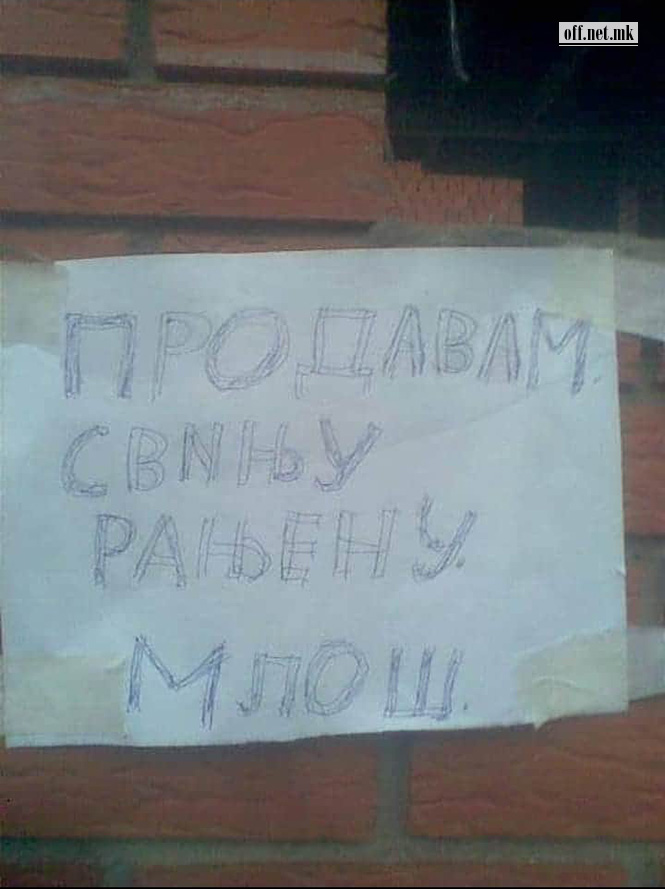 off.net.mk
ПРОДАВАМ.
СВИЊУ
РАЊЕНУ.
МЛОШ.